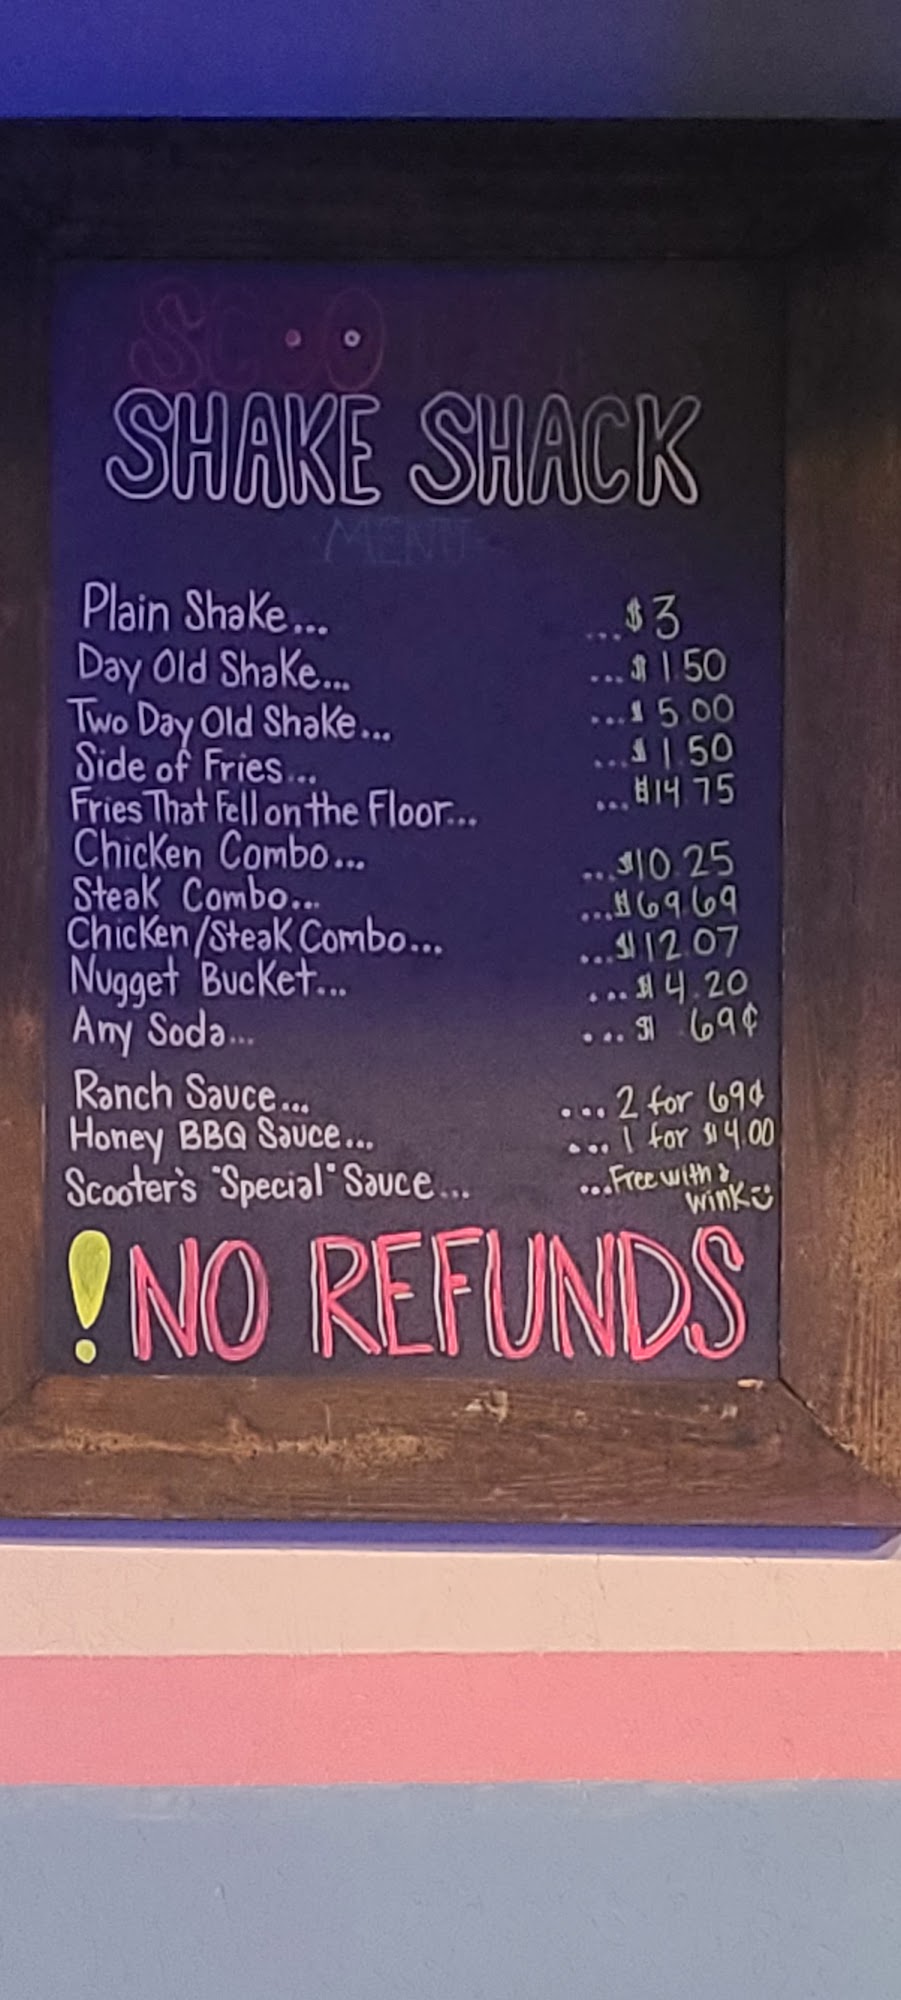 SCOO
SHAKE SHACK
MENU
Plain Shake... ...$3
Day Old Shake... ...$1.50
Two Day Old Shake... ...$5.00
Side of Fries... ...$1.50
Fries That Fell on the Floor... ...$14.75
Chicken Combo... ...$10.25
Steak Combo... ...$69.69
Chicken/Steak Combo... ...$12.07
Nugget Bucket... ...$4.20
Any Soda... ...$ .69¢
Ranch Sauce... ...2 for 69¢
Honey BBQ Sauce... ...1 for $4.00
Scooter's "Special" Sauce... ...Free with a
wink
! NO REFUNDS